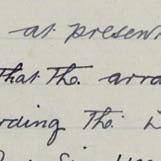 at present
That the arra
rding the